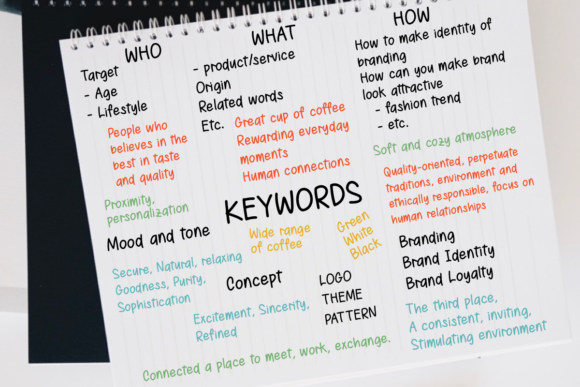 WHO
Target
- Age
- Lifestyle
People who
believes in the
best in taste
and quality
Proximity,
personalization
WHAT
- product/service
Origin
Related words
Etc.
Great cup of coffee
Rewarding everyday
moments
Human connections
HOW
How to make identity of
branding
How can you make brand
look attractive
- fashion trend
- etc.
Soft and cozy atmosphere
Quality-oriented, perpetuate
traditions, environment and
ethically responsible, focus on
human relationships
KEYWORDS
Wide range
of coffee
Green
White
Black
Mood and tone
Secure, Natural, relaxing
Goodness, Purity,
Sophistication
Concept
Excitement, Sincerity,
Refined
LOGO
THEME
PATTERN
Branding
Brand Identity
Brand Loyalty
The third place,
A consistent, inviting,
Stimulating environment
Connected a place to meet, work, exchange.